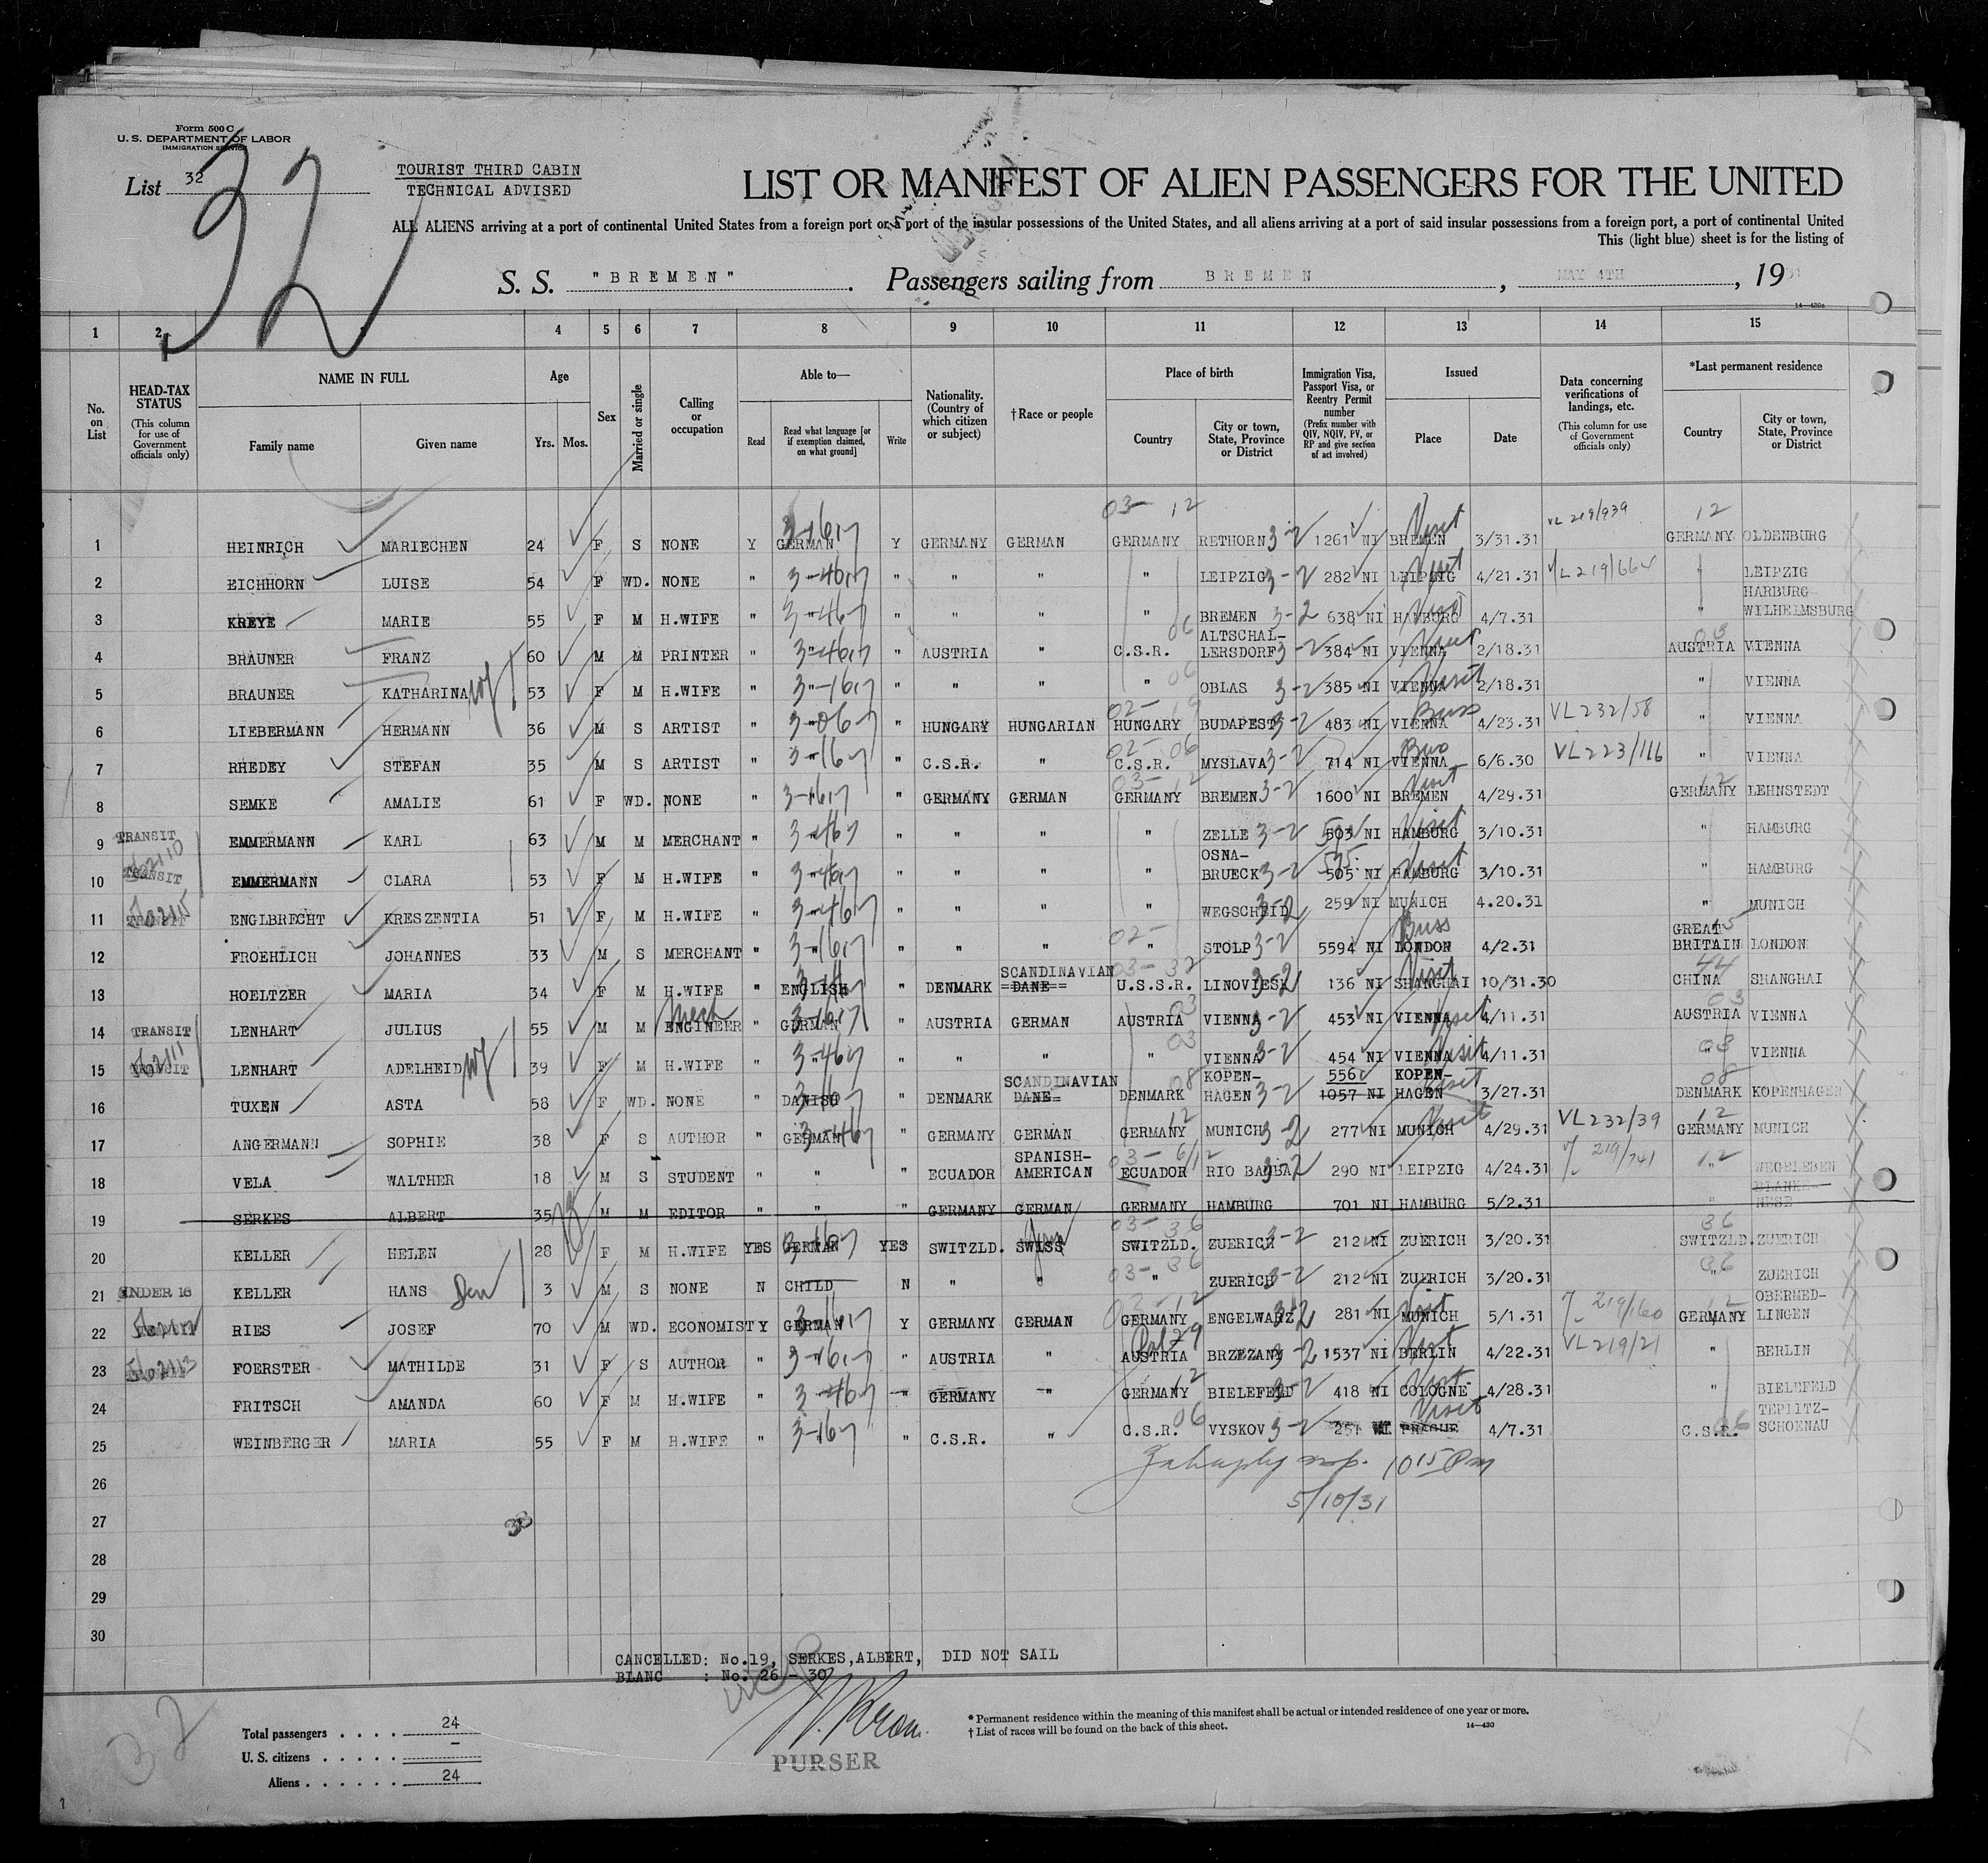 Form 500 C
U. S. DEPARTMENT OF LABOR
IMMIGRATION SERVICE
List 32
32
TOURIST THIRD CABIN
TECHNICAL ADVISED
LIST OR MANIFEST OF ALIEN PASSENGERS FOR THE UNITED
ALL ALIENS arriving at a port of continental United States from a foreign port or a port of the insular possessions of the United States, and all aliens arriving at a port of said insular possessions from a foreign port, a port of continental United
This (light blue) sheet is for the listing of
S. S. "BREMEN". Passengers sailing from BREMEN, MAY 4TH, 1931
14—430c
1 2 3 4 5 6 7 8 9 10 11 12 13 14 15
No. on List
HEAD-TAX STATUS (This column for use of Government officials only)
NAME IN FULL Family name Given name
Age Yrs. Mos.
Sex
Married or single
Calling or occupation
Able to— Read Read what language [or if exemption claimed, on what ground] Write
Nationality. (Country of which citizen or subject)
†Race or people
Place of birth Country City or town, State, Province or District
Immigration Visa, Passport Visa, or Reentry Permit number (Prefix number with QIV, NQIV, PV, or RP and give section of act involved)
Issued Place Date
Data concerning verifications of landings, etc. (This column for use of Government officials only)
*Last permanent residence Country City or town, State, Province or District
03- 12 Visit VL 219/939 12
1 HEINRICH MARIECHEN 24 F S NONE Y GERMAN Y GERMANY GERMAN GERMANY RETHORN 3-2 1261 NI BREMEN 3/31.31 GERMANY OLDENBURG
2 EICHHORN LUISE 54 F WD. NONE " " " " " " LEIPZIG 3-2 282 NI LEIPZIG Visit 4/21.31 " LEIPZIG
3 KREYE MARIE 55 F M H.WIFE " " " " " " BREMEN 3-2 638 NI HAMBURG Visit 4/7.31 " HARBURG WILHELMSBURG
4 BRAUNER FRANZ 60 M M PRINTER " " " AUSTRIA " C.S.R. 06 ALTSCHAL-LERSDORF 3-2 384 NI VIENNA Visit 2/18.31 03 AUSTRIA VIENNA
5 BRAUNER KATHARINA wf 53 F M H.WIFE " " " " " " 06 OBLAS 3-2 385 NI VIENNA Visit 2/18.31 " VIENNA
6 LIEBERMANN HERMANN 36 M S ARTIST " " " HUNGARY HUNGARIAN HUNGARY 02- 19 BUDAPEST 3-2 483 NI VIENNA Buss 4/23.31 VL232/58 " VIENNA
7 RHEDEY STEFAN 35 M S ARTIST " " " C.S.R. " C.S.R. 02- 06 MYSLAVA 3-2 714 NI VIENNA Bus 6/6.30 VL223/116 " VIENNA
8 SEMKE AMALIE 61 F WD. NONE " " " GERMANY GERMAN GERMANY 03- 12 BREMEN 3-2 1600 NI BREMEN Visit 4/29.31 12 GERMANY LEHNSTEDT
9 TRANSIT EMMERMANN KARL 63 M M MERCHANT " " " " " " ZELLE 3-2 503 NI HAMBURG Visit 3/10.31 " HAMBURG
10 TRANSIT EMMERMANN CLARA 53 F M H.WIFE " " " " " " OSNA-BRUECK 3-2 505 NI HAMBURG Visit 3/10.31 " HAMBURG
11 TRANSIT ENGLBRECHT KRESZENTIA 51 F M H.WIFE " " " " " " WEGSCHEID 3-2 259 NI MUNICH 4.20.31 " MUNICH
12 FROEHLICH JOHANNES 33 M S MERCHANT " " " " " 02- " STOLP 3-2 5594 NI LONDON Buss 4/2.31 GREAT BRITAIN LONDON
13 HOELTZER MARIA 34 F M H.WIFE " ENGLISH " DENMARK SCANDINAVIAN DANE 03- 32 U.S.S.R. 3-2 136 NI SHANGHAI Visit 10/31.30 44 CHINA SHANGHAI
14 TRANSIT LENHART JULIUS 55 M M Mech ENGINEER " GERMAN " AUSTRIA GERMAN AUSTRIA 03 VIENNA 3-2 453 NI VIENNA Visit 4/11.31 03 AUSTRIA VIENNA
15 TRANSIT LENHART ADELHEID wf 39 F M H.WIFE " " " " " " 03 VIENNA 3-2 454 NI VIENNA Visit 4/11.31 03 " VIENNA
16 TUXEN ASTA 58 F WD. NONE " DANISH " DENMARK SCANDINAVIAN DANE DENMARK 08 KOPEN-HAGEN 3-2 556 1057 NI KOPEN-HAGEN Visit 3/27.31 08 DENMARK KOPENHAGEN
17 ANGERMANN SOPHIE 38 F S AUTHOR " GERMAN " GERMANY GERMAN GERMANY 12 MUNICH 3-2 277 NI MUNICH Visit 4/29.31 VL232/39 12 GERMANY MUNICH
18 VELA WALTHER 18 M S STUDENT " " " ECUADOR SPANISH-AMERICAN 03- ECUADOR RIO BAMBA 3-2 290 NI LEIPZIG 4/24.31 219/741 12 " WEGELEBEN
19 SERKES ALBERT 35 M M EDITOR " " " GERMANY GERMAN GERMANY HAMBURG 701 NI HAMBURG 5/2.31 " BLANKE-NESE
20 KELLER HELEN 28 F M H.WIFE YES GERMAN YES SWITZLD. SWISS 03- 36 SWITZLD. ZUERICH 3-2 212 NI ZUERICH 3/20.31 36 SWITZLD. ZUERICH
21 UNDER 16 KELLER HANS Son 3 M S NONE N CHILD N " " 03- 36 " ZUERICH 3-2 212 NI ZUERICH 3/20.31 36 " ZUERICH
22 RIES JOSEF 70 M WD. ECONOMIST Y GERMAN Y GERMANY GERMAN 03-12 GERMANY ENGELWARZ 3-2 281 NI MUNICH Visit 5/1.31 219/160 12 GERMANY OBERMED-LINGEN
23 FOERSTER MATHILDE 31 F S AUTHOR " " " AUSTRIA " AUSTRIA BRZEZANY 3-2 1537 NI BERLIN Visit 4/22.31 VL219/21 " BERLIN
24 FRITSCH AMANDA 60 F M H.WIFE " " " GERMANY " 12 GERMANY BIELEFELD 3-2 418 NI COLOGNE Visit 4/28.31 " BIELEFELD
25 WEINBERGER MARIA 55 F M H.WIFE " " " C.S.R. " C.S.R. 06 VYSKOV 3-2 PRAGUE Visit 4/7.31 C.S.R. 06 TEPLITZ-SCHOENAU
26 10 15 Pm
27 5/10/31
28
29
30
CANCELLED: No.19, SERKES,ALBERT, DID NOT SAIL
BLANC : No. 26 - 30
32
Total passengers . . . . 24
U. S. citizens . . . . . -
Aliens . . . . . . 24
PURSER
* Permanent residence within the meaning of this manifest shall be actual or intended residence of one year or more.
† List of races will be found on the back of this sheet.
14—430